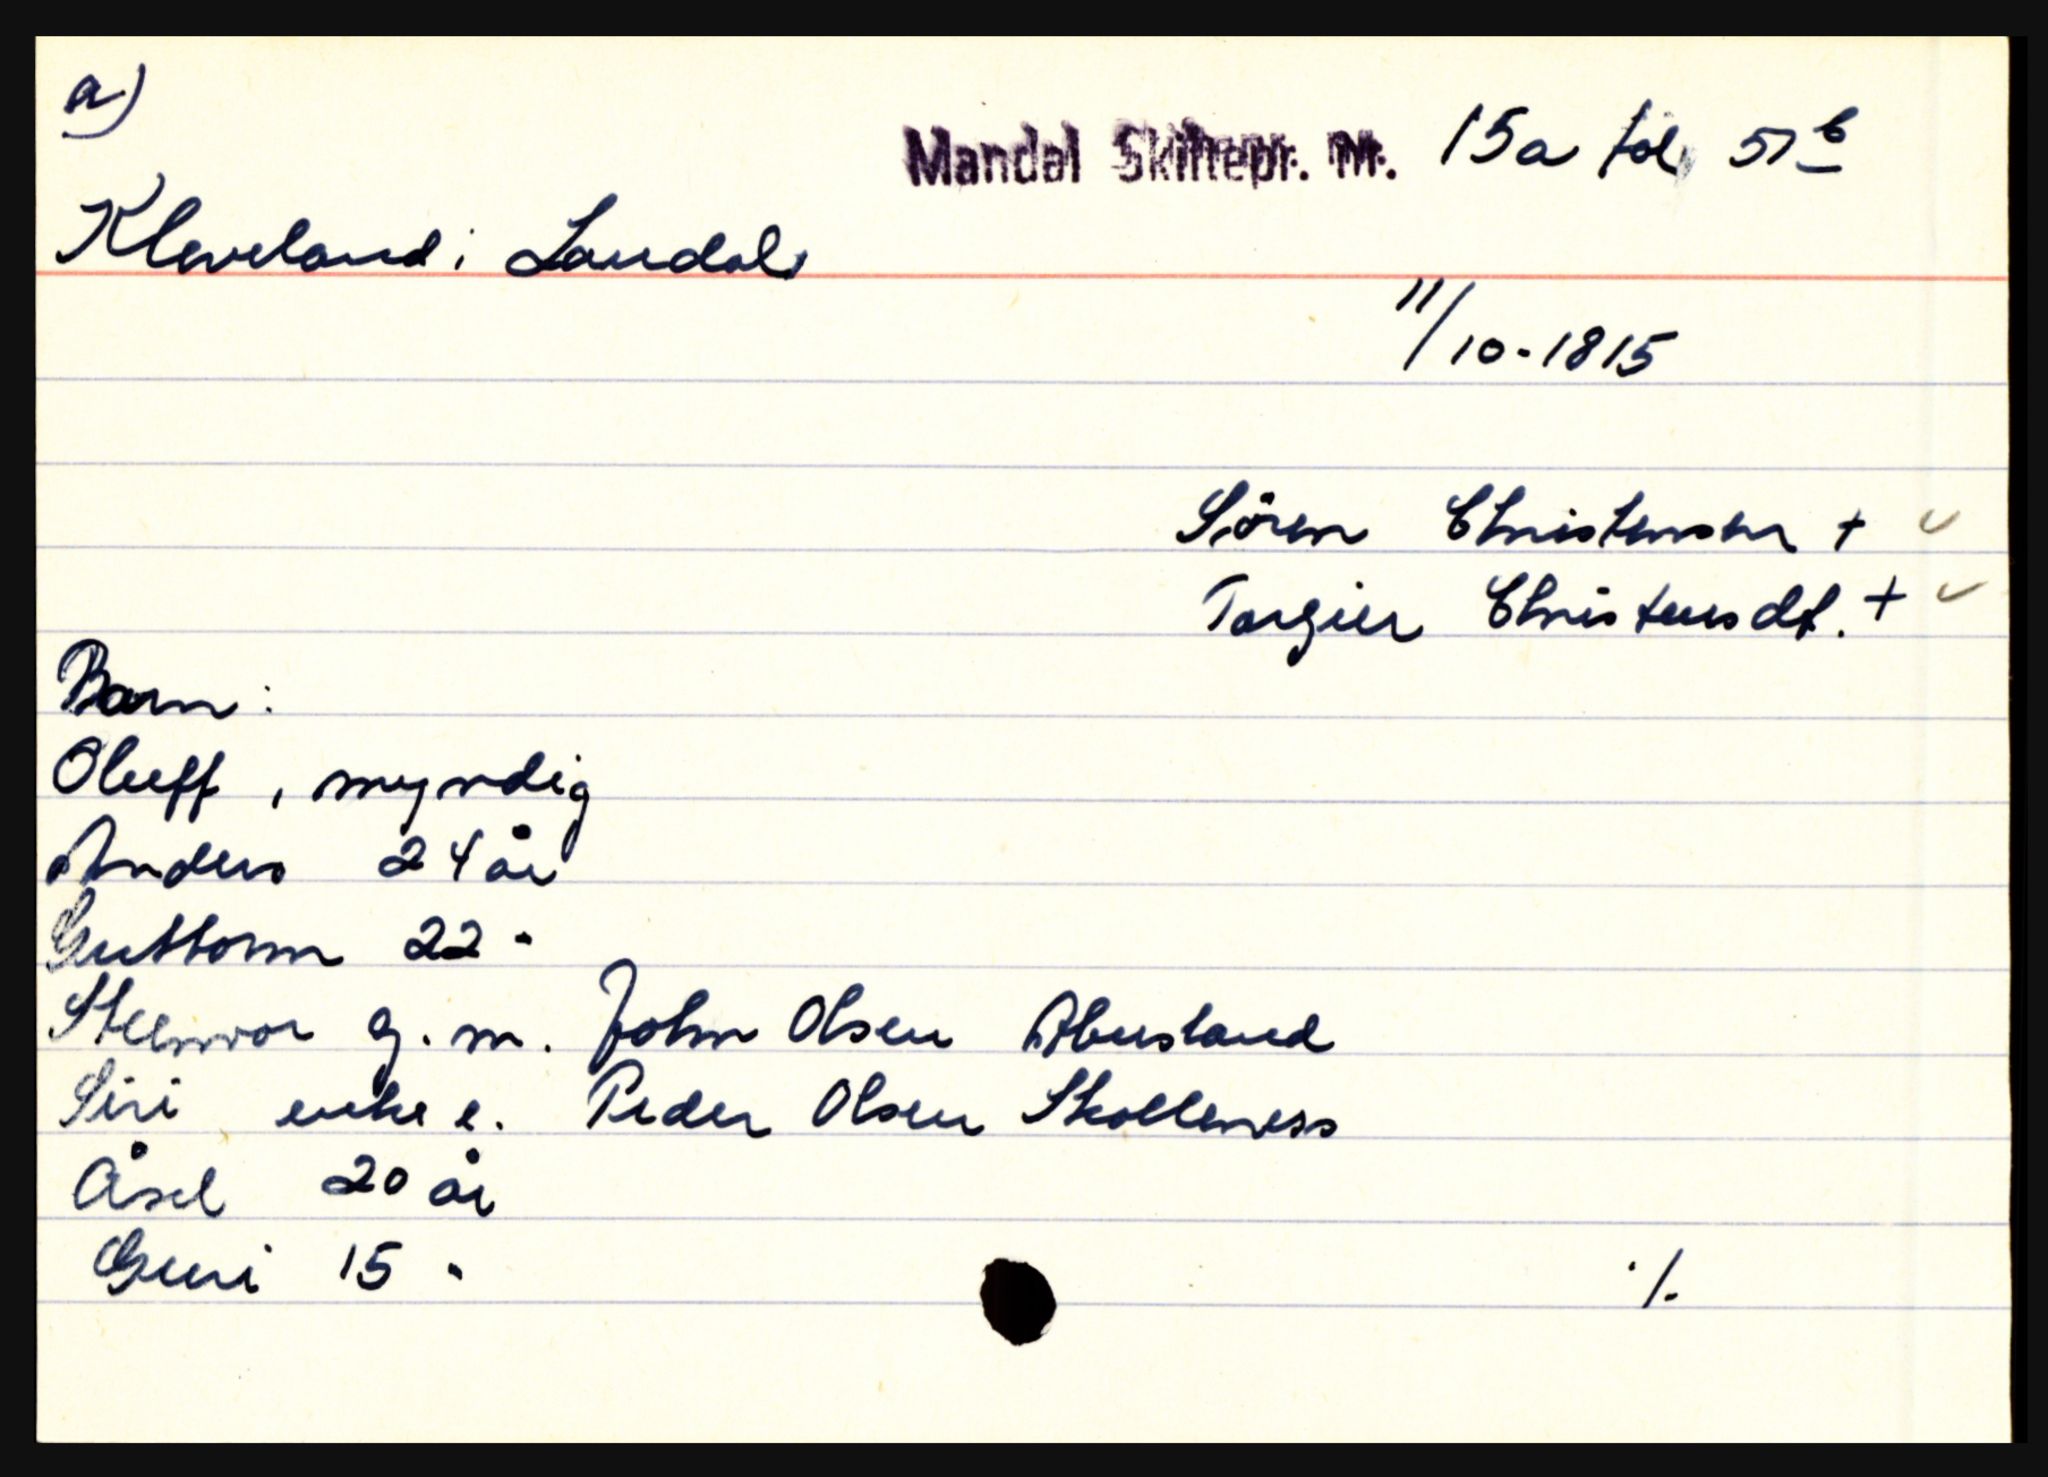 a)
Mandal Skiftepr. nr. 15a fol. 51 b
Kleveland i Laudal
11/10-1815
Sören Christensen +
Torgier Christensdt. +
Barn:
Oluff, myndig
Anders 24 år
Guttorm 22 "
Steenvor g. m. John Olsen Abusland
Siri enke e. Peder Olsen Skolleness
Åsel 20 år
Guri 15 "
./.